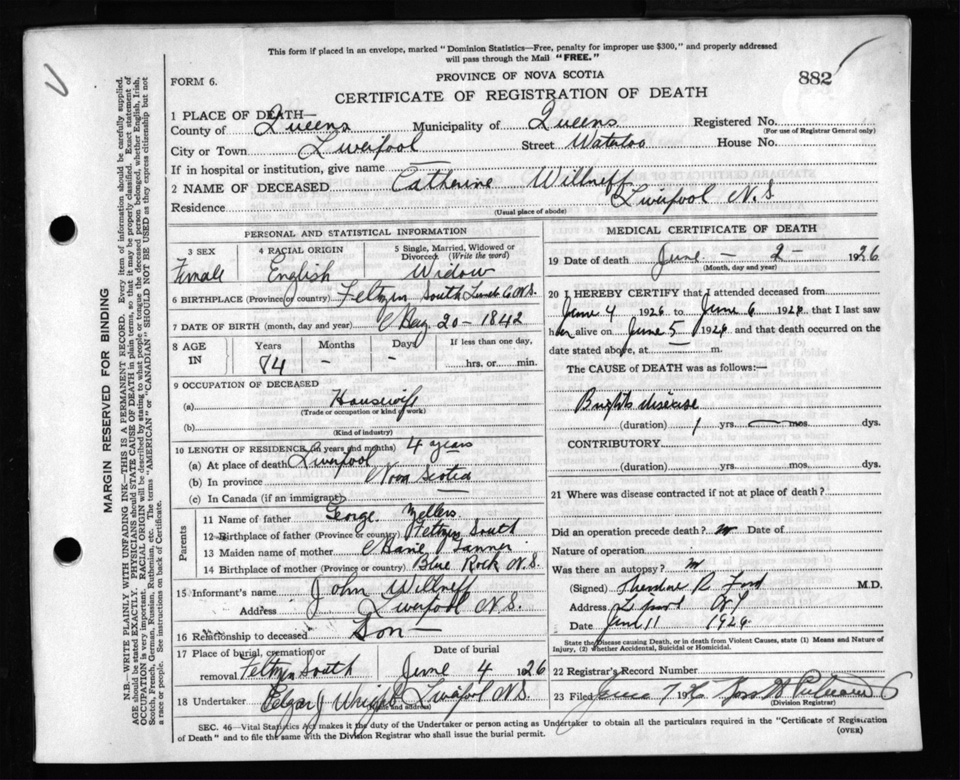 This form if placed in an envelope, marked "Dominion Statistics—Free, penalty for improper use $300," and properly addressed
will pass through the Mail "FREE."
FORM 6.
PROVINCE OF NOVA SCOTIA
882
CERTIFICATE OF REGISTRATION OF DEATH
1 PLACE OF DEATH—
County of Queens Municipality of Queens Registered No.
(For use of Registrar General only)
City or Town Liverpool Street Waterloo House No.
If in hospital or institution, give name —
2 NAME OF DECEASED Catherine Willneff
Residence Liverpool N.S.
(Usual place of abode)
PERSONAL AND STATISTICAL INFORMATION
3 SEX 4 RACIAL ORIGIN 5 Single, Married, Widowed or Divorced (Write the word)
Female English Widow
6 BIRTHPLACE (Province or country) Feltzen South Lunen Co N.S.
7 DATE OF BIRTH (month, day and year) May 20 - 1842
8 AGE IN Years Months Days If less than one day,
84 - - hrs. or min.
9 OCCUPATION OF DECEASED
(a) Housewife
(Trade or occupation or kind of work)
(b)
(Kind of industry)
10 LENGTH OF RESIDENCE (in years and months) 4 years
(a) At place of death Liverpool
(b) In province Nova Scotia
(c) In Canada (if an immigrant) —
Parents
11 Name of father George Zellers
12 Birthplace of father (Province or country) Feltzen South
13 Maiden name of mother Marie Tanner
14 Birthplace of mother (Province or country) Blue Rock N.S.
15 Informant's name John Willneff
Address Liverpool N.S.
16 Relationship to deceased Son —
17 Place of burial, cremation or removal Date of burial
Feltzen South June 4 1926
18 Undertaker Edgar J Liverpool N.S.
(Name and address)
MEDICAL CERTIFICATE OF DEATH
19 Date of death June - 2 - 1926
(Month, day and year)
20 I HEREBY CERTIFY that I attended deceased from
June 4 1926 to June 6 1926 that I last saw
her alive on June 5 1926 and that death occurred on the
date stated above, at m.
The CAUSE OF DEATH was as follows:—
Brights disease
(duration) 1 yrs. — mos. dys.
CONTRIBUTORY
(duration) yrs. mos. dys.
21 Where was disease contracted if not at place of death?
Did an operation precede death? no Date of
Nature of operation
Was there an autopsy? no
(Signed) Theodore R Ford M.D.
Address L'pool N S
Date June 11 1926
State the Disease causing Death, or in death from Violent Causes, state (1) Means and Nature of
Injury, (2) whether Accidental, Suicidal or Homicidal.
22 Registrar's Record Number
23 Filed June 1926
(Division Registrar)
SEC. 46—Vital Statistics Act makes it the duty of the Undertaker or person acting as Undertaker to obtain all the particulars required in the "Certificate of Registration
of Death" and to file the same with the Division Registrar who shall issue the burial permit.
(OVER)
MARGIN RESERVED FOR BINDING
N.B.—WRITE PLAINLY WITH UNFADING INK—THIS IS A PERMANENT RECORD. Every item of information should be carefully supplied.
AGE should be stated EXACTLY. PHYSICIANS should STATE CAUSE OF DEATH in plain terms, so that it may be properly classified. Exact statement of
OCCUPATION is very important. RACIAL ORIGIN will be described by stating to what people or tongue the deceased person belonged, whether English, Irish,
Scotch, French, German, Russian, Ruthenian, etc. The terms "AMERICAN" or "CANADIAN" SHOULD NOT BE USED as they express citizenship but not
a race or people. See instructions on back of Certificate.